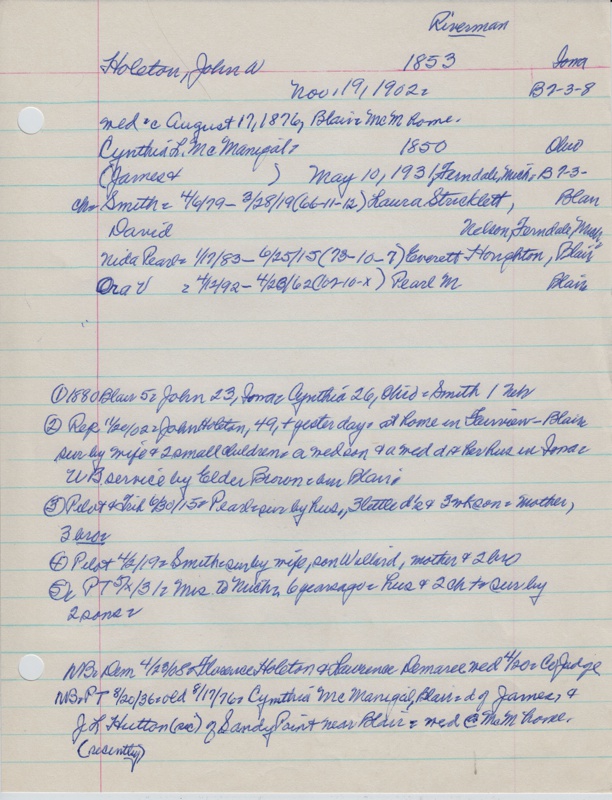 Riverman
Holston, John W 1853 Iowa
Nov. 19, 1902 = B7-3-8
med = c August 17, 1876, Blair = McM home.
Cynthia L. McManigal = 1850 Ohio
(James & ) May 10, 1931, Ferndale, Mich = B7-3-
ch = Smith = 4/6/79 - 3/28/19 (66-11-12) Laura Stricklett, Blair
David Nelson, Ferndale, Mich
Nida Pearl = 1/17/83 - 6/25/15 (73-10-7) Everett Houghton, Blair
Ora V = 4/12/92 - 4/23/62 (102-10-x) Pearl M Blair
① 1880 Blair 5 = John 23, Iowa = Cynthia 26, Ohio = Smith 1 Neb
② Rep. 11/20/02 = John Holston, 49, + yesterday = at home in Fairview - Blair =
sur by wife & 2 small children = a med son & a med d + her hus in Iowa =
UB service by Elder Brown = bur Blair =
③ Pilot & Trib 6/30/15 = Pearl = sur by hus., 3 little d's & 3 wk son = mother,
3 bro =
④ Pilot 4/2/19 = Smith = sur by wife, son Willard, mother & 2 bro
⑤ PT 5/x/31 = Mrs. to Mich, 6 years ago = hus & 2 ch + = sur by
2 sons =
NB = Dem 4/23/08 = Florence Holston & Lawrence Demaree med 4/20 = Co Judge
NB = PT 8/20/36 = old 8/17/76 = Cynthia McManigal, Blair = d of James, &
J L Hutton (sic) of Sandy Point near Blair = med @ McM home.
(recently)